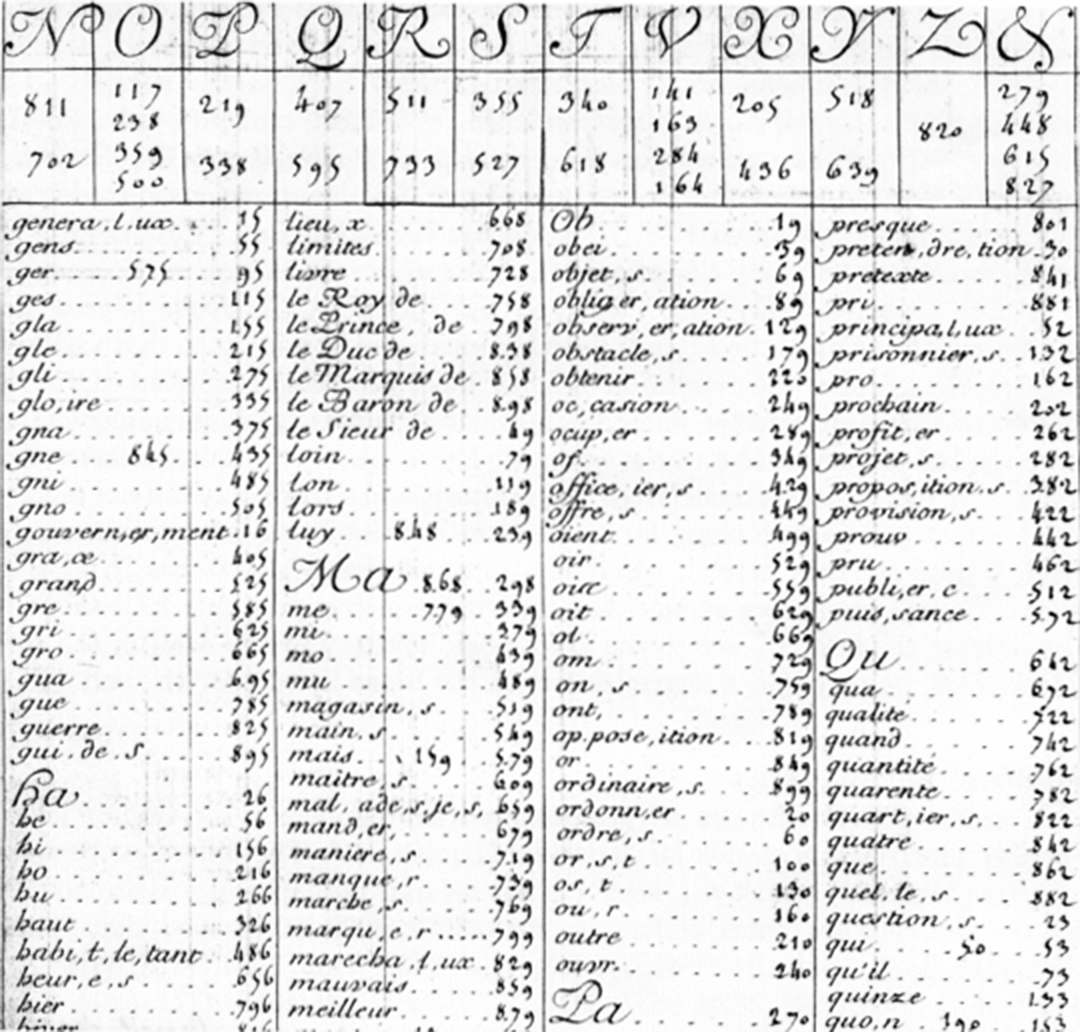 N O P Q R S T V X Y Z &
811 117 219 407 511 355 340 141 205 518 279
238 163 820 448
702 359 338 595 733 527 618 284 436 639 615
500 164 827
genera, l. ux. 15
gens 55
ger 575 95
ges 115
gla 155
gle 215
gli 275
glo, ire 335
gna 375
gne 845 435
gni 485
gno 505
gouvern, er, ment 16
gra, ce 405
grand 525
gre 585
gri 625
gro 665
gua 695
gue 785
guerre 825
gui, de s 895
ha 26
he 56
hi 156
ho 216
hu 266
haut 326
habi, t, le, tant 486
heur, e, s 656
hier 796
lieu, x 668
limites 708
livre 728
le Roy de 758
le Prince, de 798
le Duc de 838
le Marquis de 858
le Baron de 898
le Sieur de 49
loin 79
lon 119
lors 189
luy 848 239
Ma 868 298
me 779 339
mi 379
mo 439
mu 489
magasin, s 519
main, s 549
mais 159 579
maitre, s 609
mal, ade, s, je, s, 659
mand, er, 679
maniere, s 719
manque, r 739
marche, s 769
marqu, e, r 799
marecha, l, ux 829
mauvais 859
meilleur 879
Ob 19
obei 39
objet, s 69
oblig er, ation 89
observ, er, ation 129
obstacle, s 179
obtenir 220
oc, casion 249
ocup, er 289
of 349
office, ier, s 429
offre, s 449
oient 499
oir 529
oise 559
oit 629
ol 669
om 729
on, s 759
ont, 789
op. pose, ition 819
or 849
ordinaire, s 899
ordonn, er 20
ordre, s 60
or, s, t 100
os, t 130
ou, r 160
outre 210
ouvr 240
Pa 270
presque 801
preten, dre, tion 30
pretexte 841
pri 881
principa, l, ux 52
prisonnier, s 132
pro 162
prochain 202
profit, er 262
projet, s 282
propos, ition, s 382
provision, s 422
prouv 442
pru 462
publi, er, c 512
puis, sance 572
Qu 642
qua 692
qualité 722
quand 742
quantité 762
quarente 782
quart, ier, s 822
quatre 842
que 862
quel, le, s 882
question, s 23
qui 50 53
qu'il 73
quinze 133
quo, n 190 153